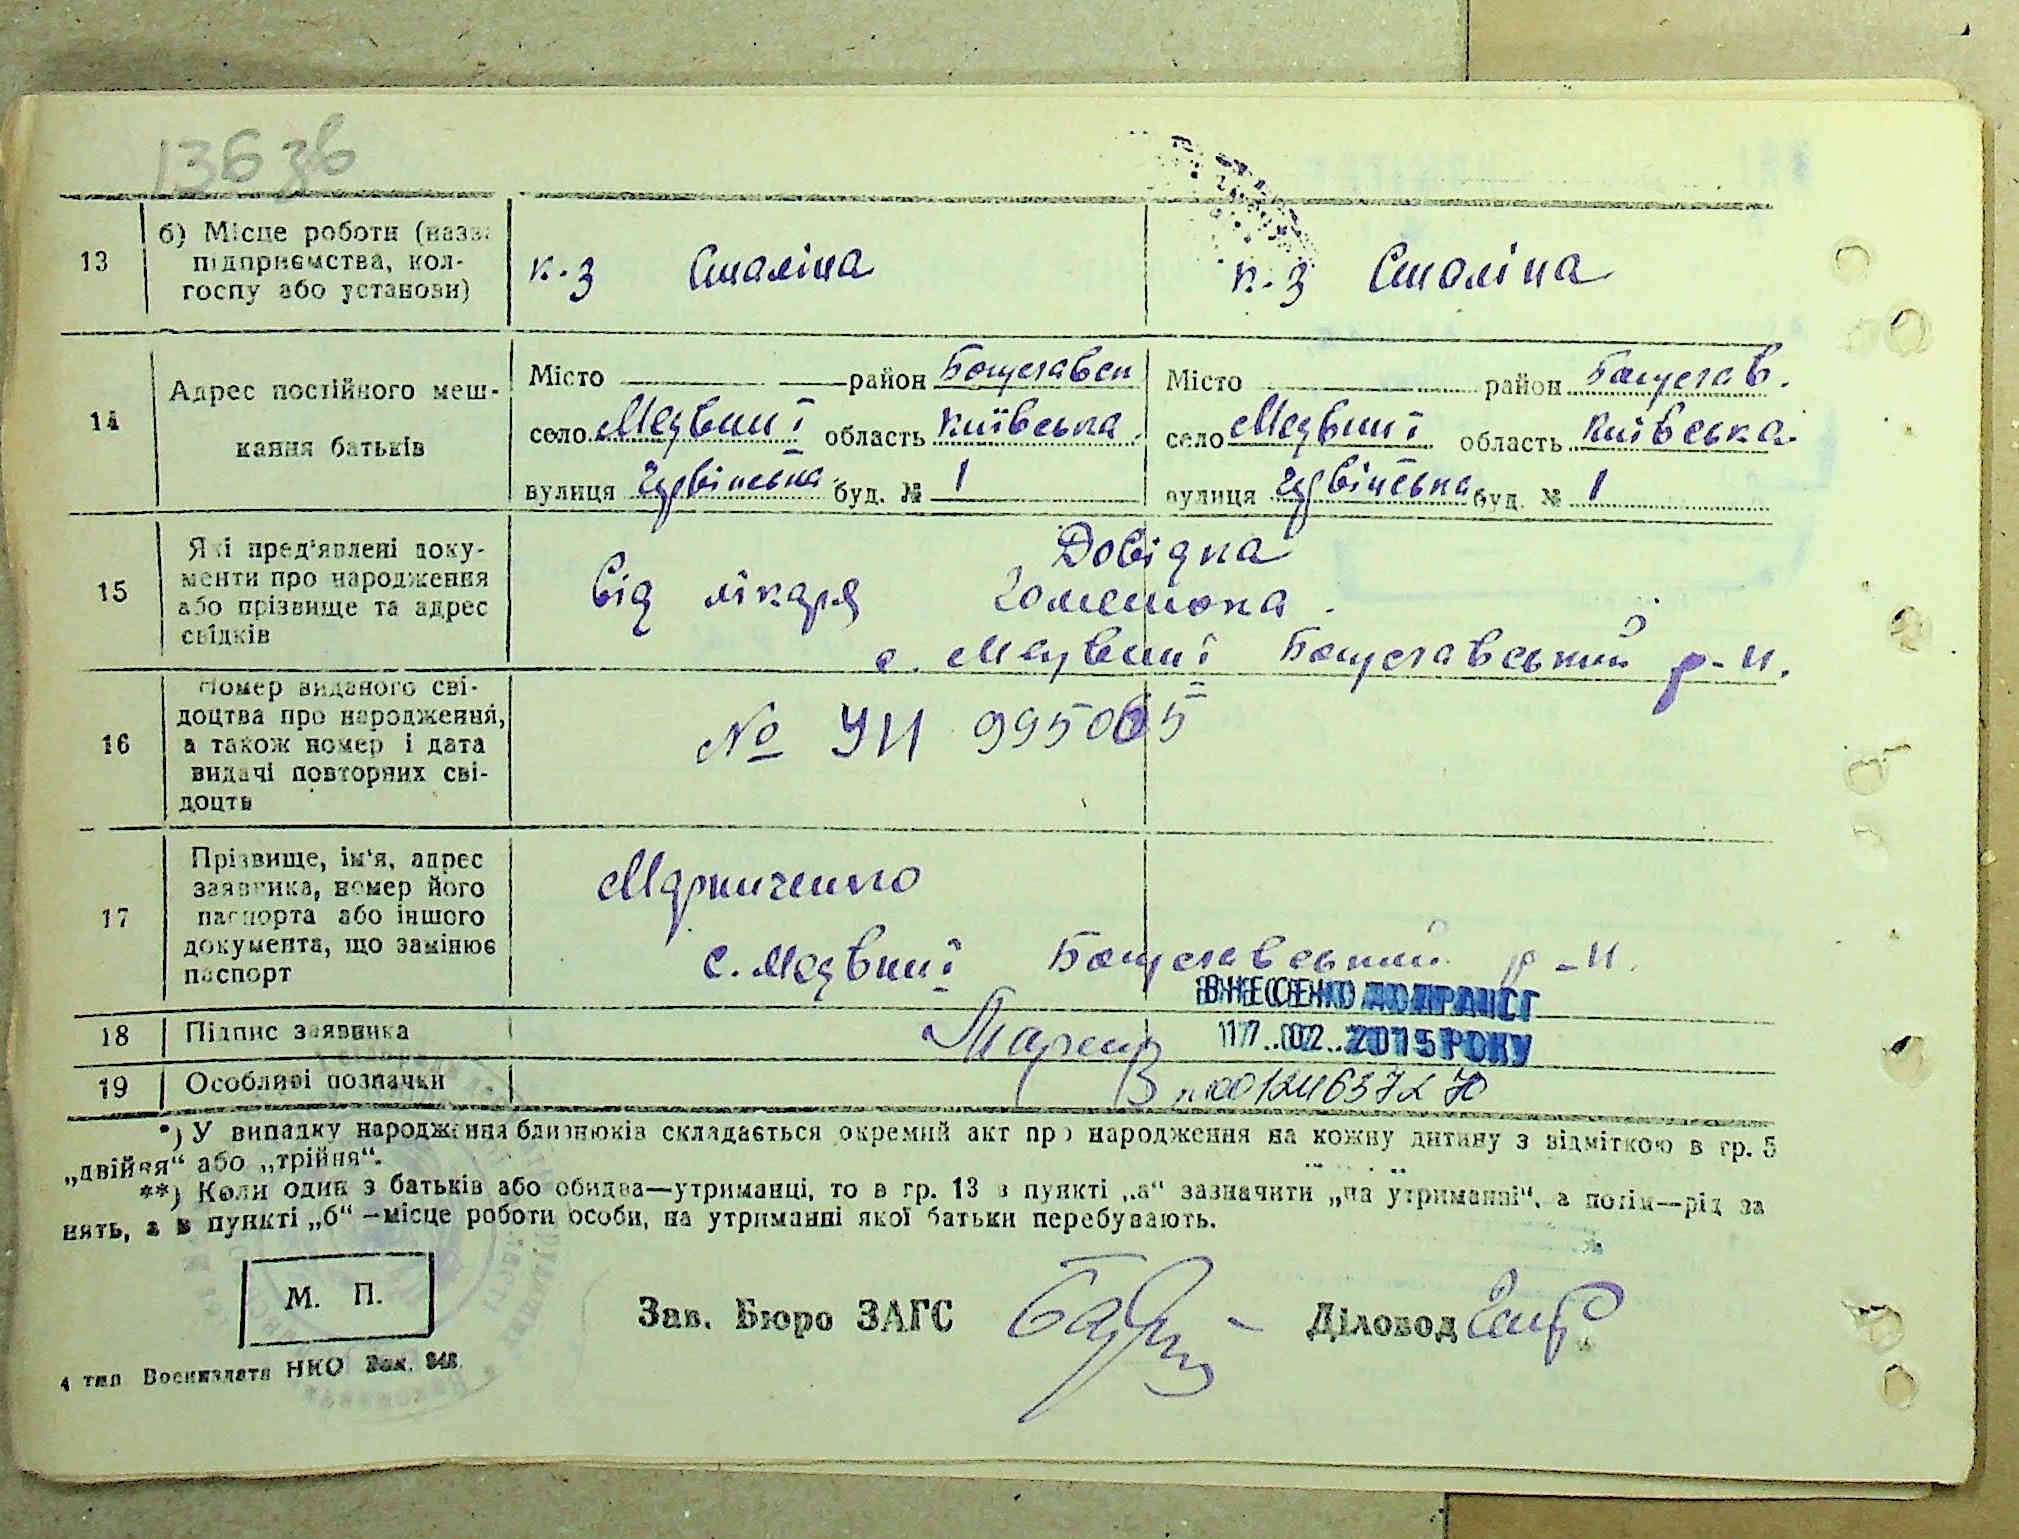 136 зв
13
б) Місце роботи (назва
підприємства, кол-
госпу або установи)
к-з Сталіна
к-з Сталіна
14
Адрес постійного меш-
кання батьків
Місто район Богуславськ
село Медвин ї область Київська
вулиця буд. № 1
Місто район Богуслав.
село Медвин ї область Київська
вулиця буд. № 1
15
Які пред'явлені доку-
менти про народження
або прізвище та адрес
свідків
Довідка
від лікаря
с. Медвин ї Богуславський р-н.
16
Номер виданого сві-
доцтва про народження,
а також номер і дата
видачі повторних сві-
доцтв
№ УИ 995065
17
Прізвище, ім'я, адрес
заявника, номер його
паспорта або іншого
документа, що замінює
паспорт
Марниченко
с. Медвин ї Богуславський р-н.
ВНЕСЕНО ДО ДРАЦСГ
18
Підпис заявника
17. 02. 2015 РОКУ
19
Особливі позначки
*) У випадку народження близнюків складається окремий акт про народження на кожну дитину з відміткою в гр. 5
„двійня“ або „трійня“.
**) Коли один з батьків або обидва—утриманці, то в гр. 13 в пункті „а“ зазначити „на утриманні“, а потім—рід за
нять, а в пункті „б“ —місце роботи особи, на утриманні якої батьки перебувають.
М. П.
Зав. Бюро ЗАГС
Діловод
4 тип Воениздата НКО Зак. 848.